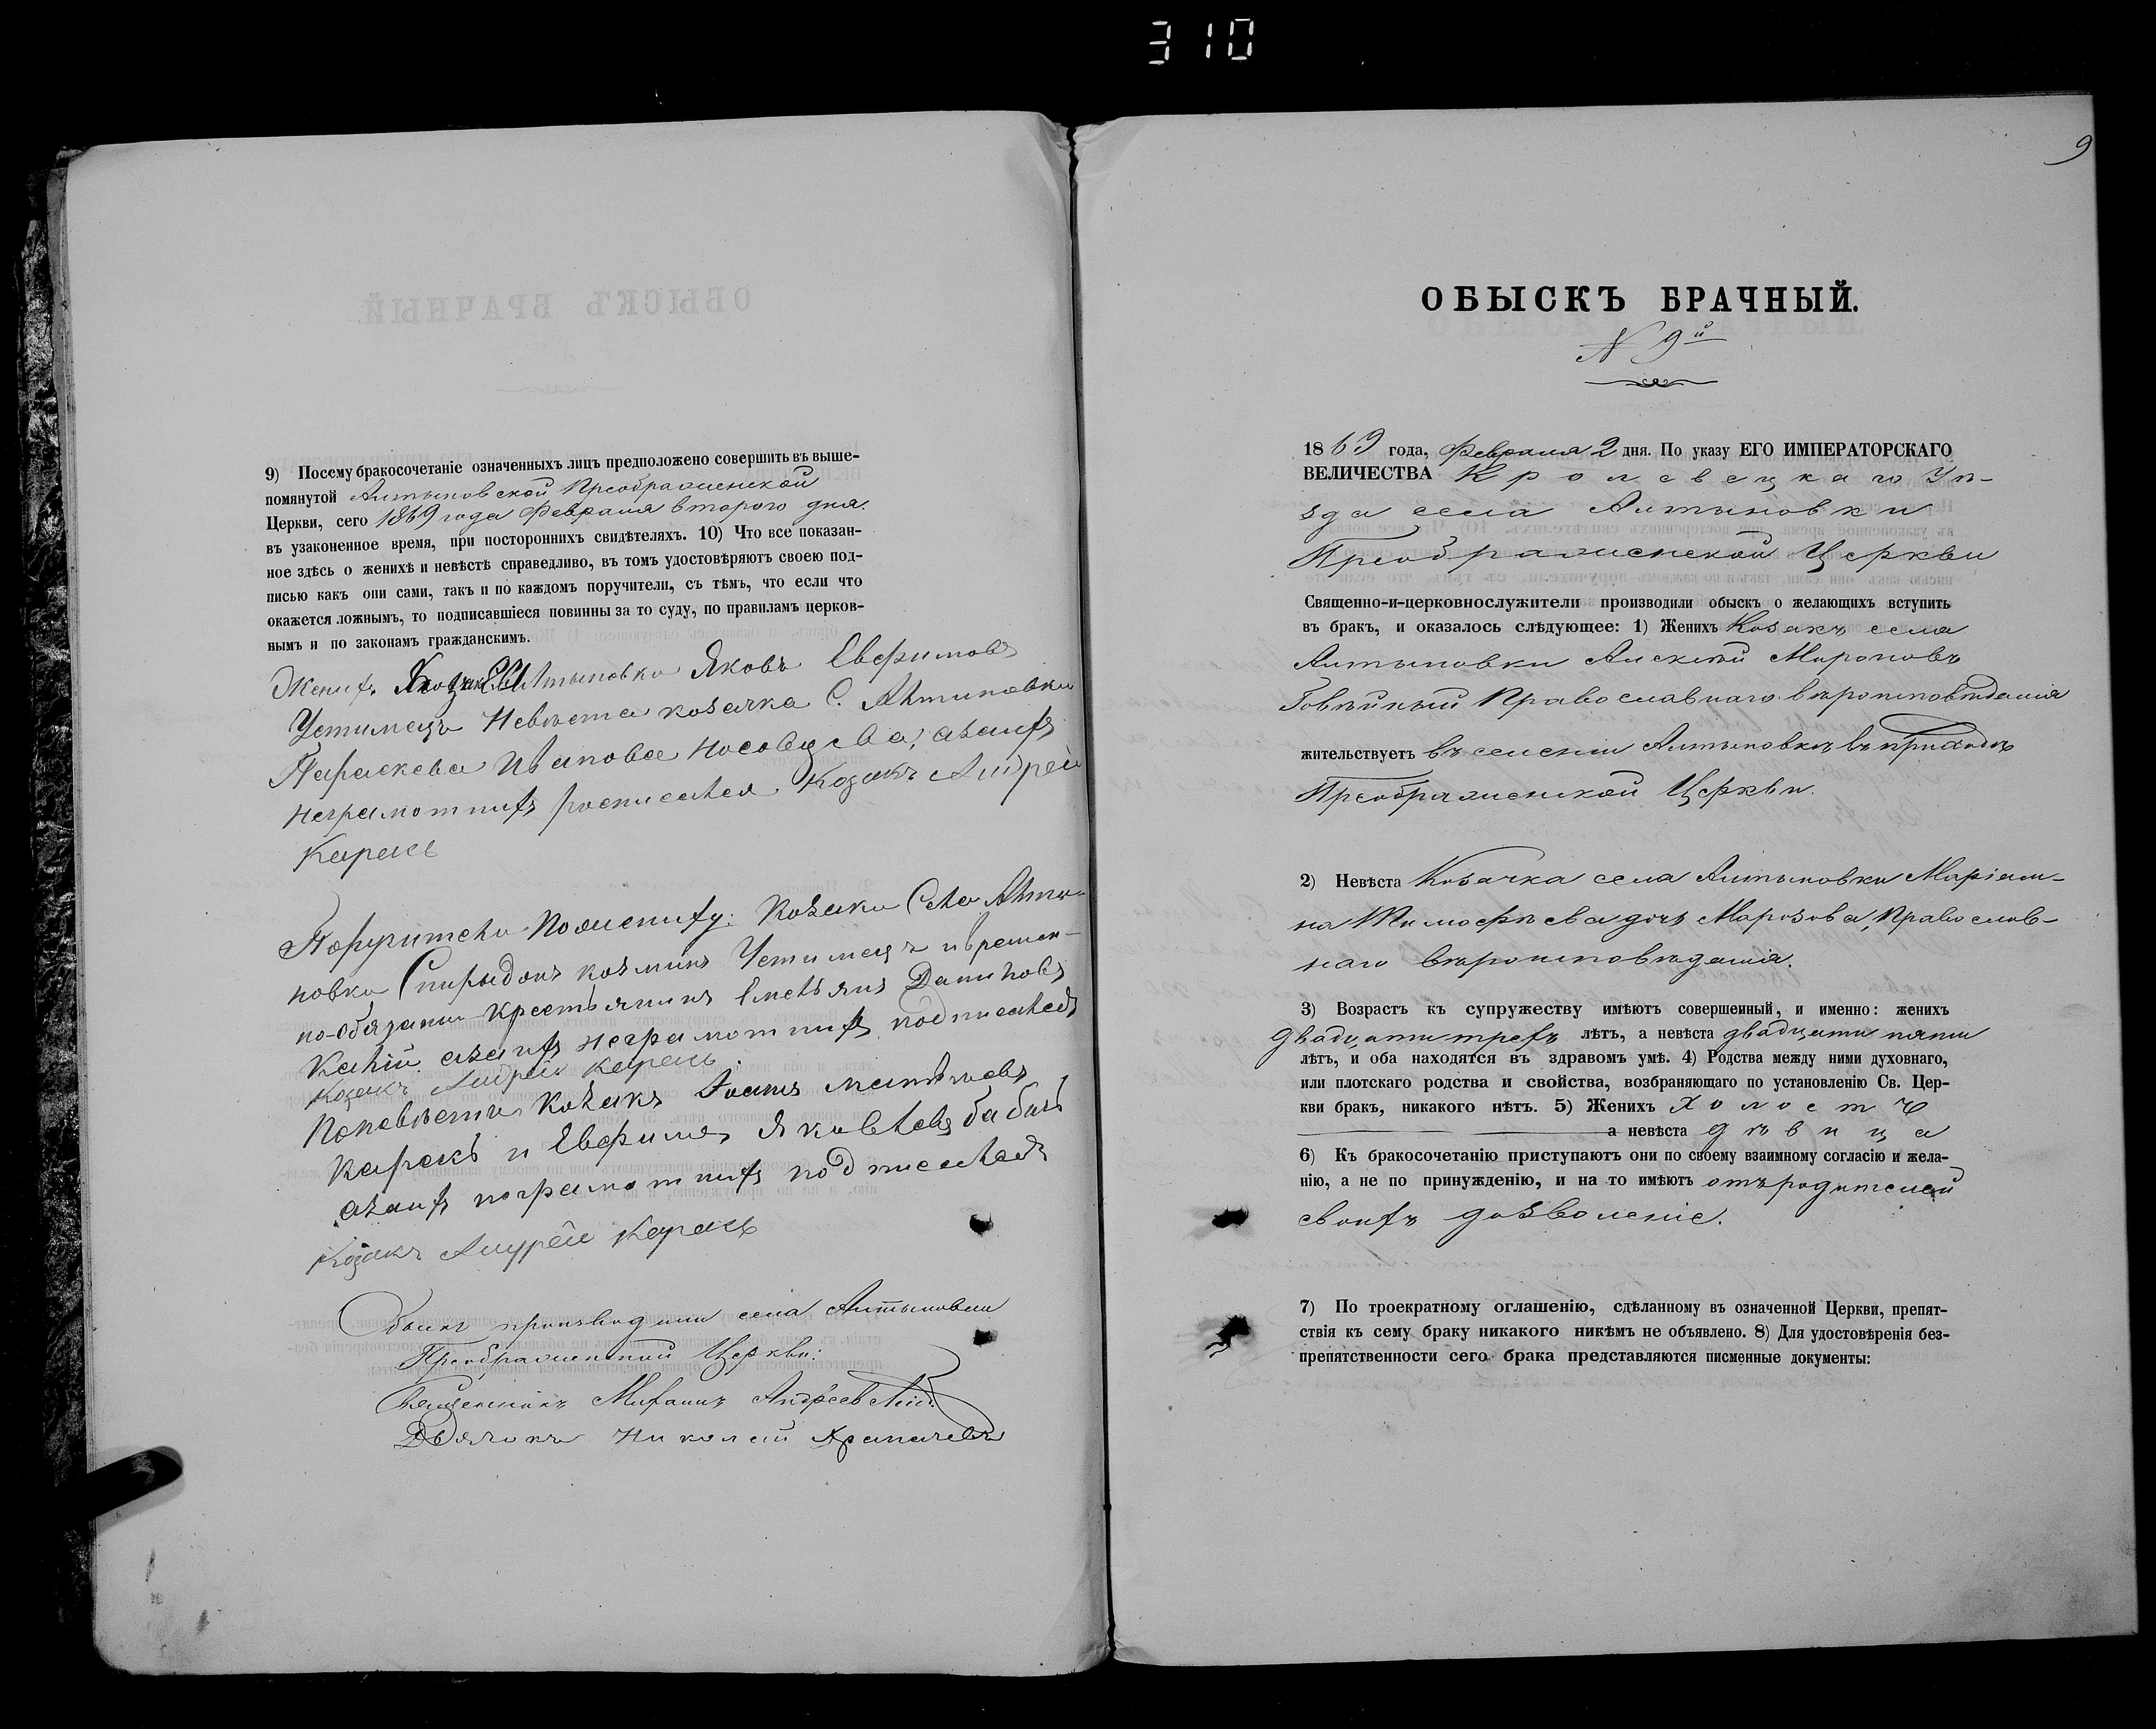 310
9) Посему бракосочетаніе означенныхъ лицъ предположено совершить въ выше-
помянутой Алтыновской Преображенской
Церкви, сего 1869 года Февраля второго дня.
въ узаконенное время, при постороннихъ свидѣтеляхъ. 10) Что все показан-
ное здѣсь о женихѣ и невѣстѣ справедливо, въ томъ удостовѣряютъ своею под-
писью какъ они сами, такъ и по каждомъ поручители, съ тѣмъ, что если что
окажется ложнымъ, то подписавшіеся повинны за то суду, по правиламъ церков-
нымъ и по законамъ гражданскимъ.
Женихъ Алтыновки Яковъ Евфимовъ
Устимецъ Невѣста козачка С. Алтиновки
Параскева Иванова Носовцева, азаихъ
неграмотнихъ росписался Козакъ Андрей
Карась
Поручители Пожениху: Козаки Села Алты-
новки Спиридонъ Козминъ Устимецъ и времен-
но-обязании Крестьянинъ Емельянъ Даниловъ
Капій азаихъ неграмотнихъ подписался
Козакъ Андрей Карась
Поневѣсти Козакъ Іоанъ Матвѣевъ
Карась и Евфимъ Яковлевъ Бабичъ
азаихъ неграмотнихъ подписался
Козакъ Андрей Карась
Обыскъ производили села Алтыновки
Преображенской Церкви:
Священникъ Михаилъ Андреевскій
Дьячокъ Николай
9
ОБЫСКЪ БРАЧНЫЙ.
N 9й
1869 года, Февраля 2 дня. По указу ЕГО ИМПЕРАТОРСКАГО
ВЕЛИЧЕСТВА Кролевецкаго Уѣ-
зда села Алтыновки
Преображенской Церкви
Священно-и-церковнослужители производили обыскъ о желающихъ вступить
въ бракъ, и оказалось слѣдующее: 1) Женихъ Козакъ села
Алтыновки Алексѣй Мироновъ
Говѣйный Православнаго вѣроисповѣданія
жительствуетъ въ селеніи Алтыновкѣ въ приходѣ
Преображенской Церкви.
2) Невѣста Козачка села Алтыновки Маріам-
на Тимофѣева дочь Марозова, Православ-
наго вѣроисповѣданія.
3) Возрастъ къ супружеству имѣютъ совершенный, и именно: женихъ
двадцати трехъ лѣтъ, а невѣста двадцати пяти
лѣтъ, и оба находятся въ здравомъ умѣ. 4) Родства между ними духовнаго,
или плотскаго родства и свойства, возбраняющаго по установленію Св. Цер-
кви бракъ, никакого нѣтъ. 5) Женихъ холостъ
а невѣста дѣвица
6) Къ бракосочетанію приступаютъ они по своему взаимному согласію и жела-
нію, а не по принужденію, и на то имѣютъ отъ родителей
своихъ дозволеніе.
7) По троекратному оглашенію, сдѣланному въ означенной Церкви, препят-
ствія къ сему браку никакого никѣмъ не объявлено. 8) Для удостовѣренія без-
препятственности сего брака представляются писменные документы: